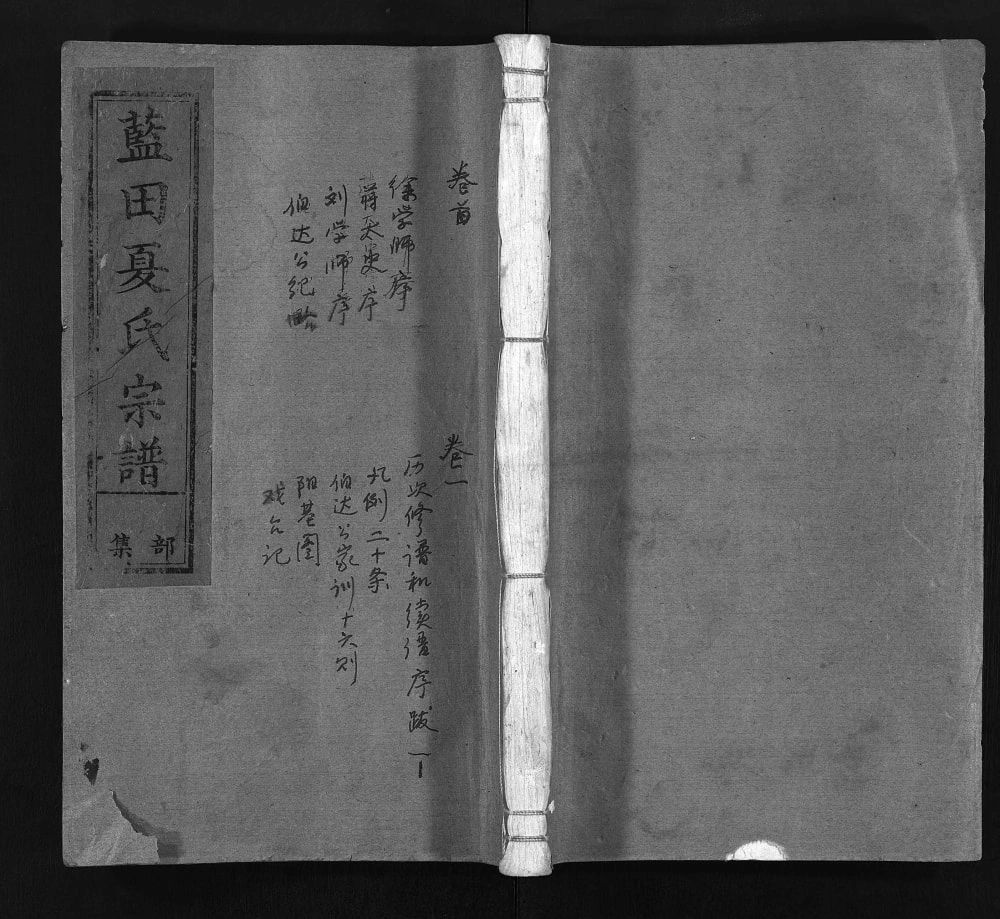 卷首
徐学师序
蒋天叟序
刘学师序
伯达公纪略
卷一
历次修谱和续谱序跋
凡例二十条
伯达公家训十六则
阳基图
戏台记
藍田夏氏宗譜
部集